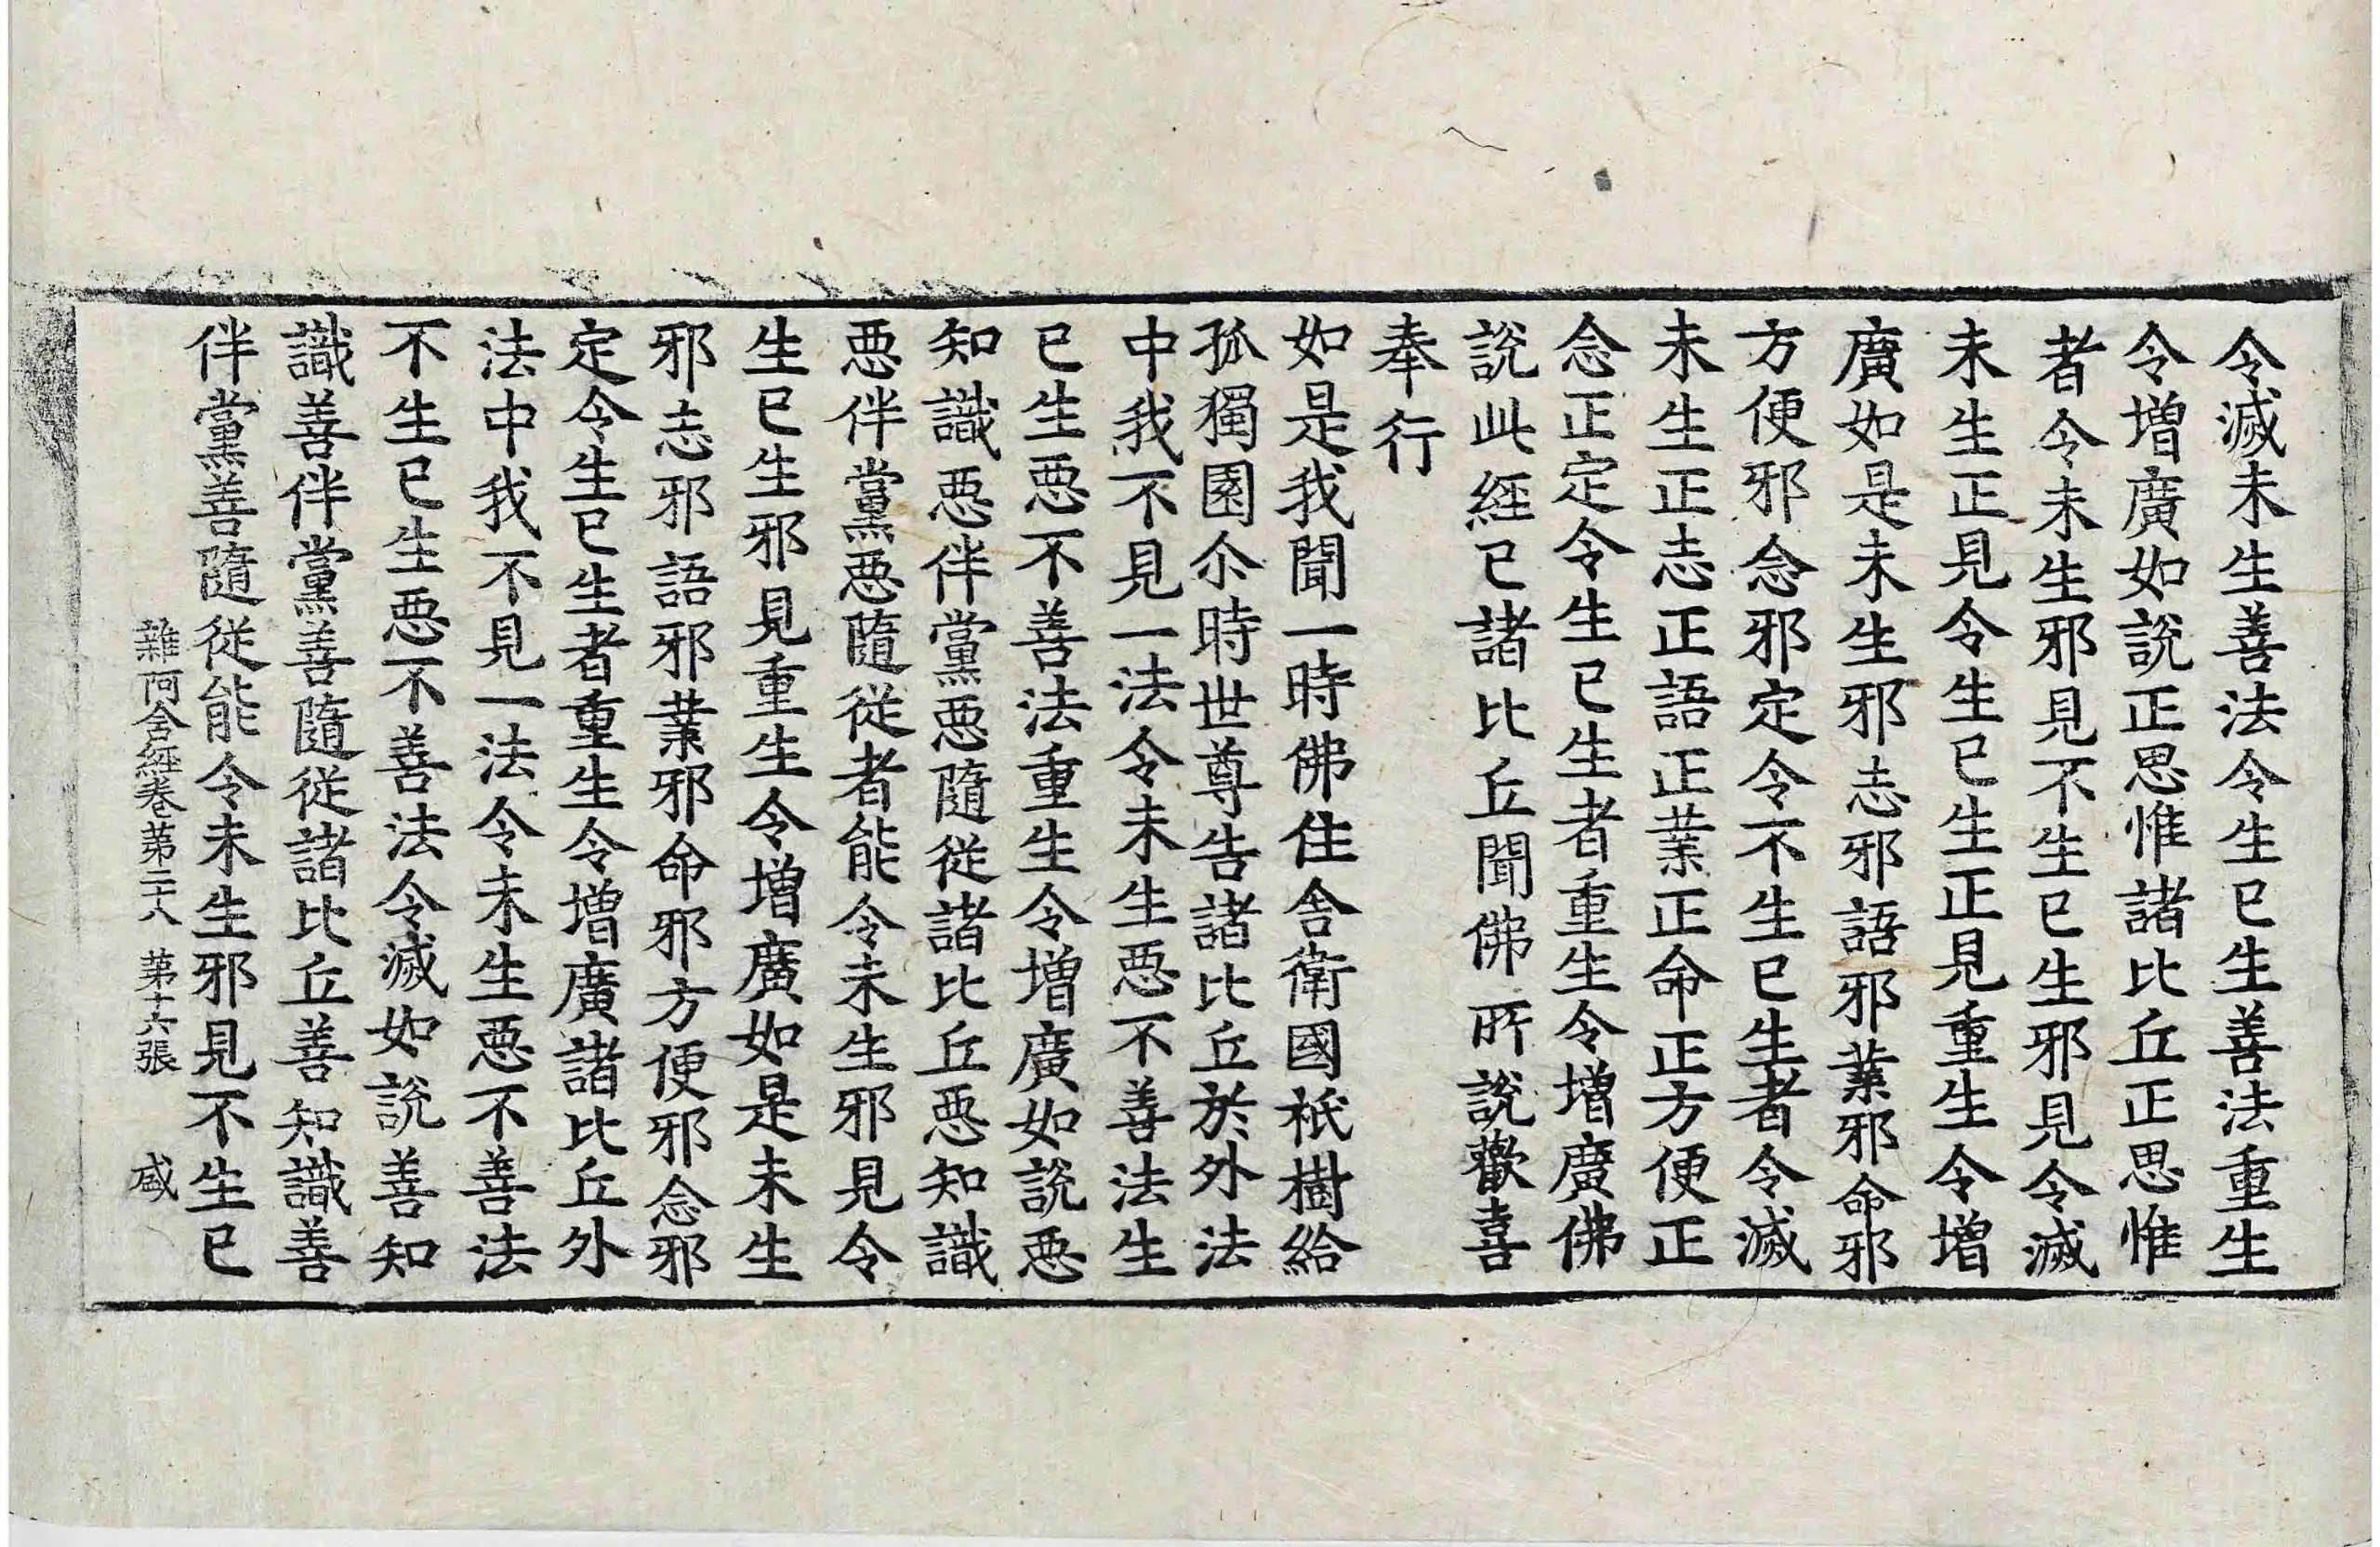 令滅未生善法令生已生善法重生
令增廣如說正思惟諸比丘正思惟
者令未生邪見不生已生邪見令滅
未生正見令生已生正見重生令增
廣如是未生邪志邪語邪業邪命邪
方便邪念邪定令不生已生者令滅
未生正志正語正業正命正方便正
念正定令生已生者重生令增廣佛
說此經已諸比丘聞佛所說歡喜
奉行
如是我聞一時佛住舍衛國祇樹給
孤獨園尒時世尊告諸比丘於外法
中我不見一法令未生惡不善法生
已生惡不善法重生令增廣如說惡
知識惡伴黨惡隨從諸比丘惡知識
惡伴黨惡隨從者能令未生邪見令
生已生邪見重生令增廣如是未生
邪志邪語邪業邪命邪方便邪念邪
定令生已生者重生令增廣諸比丘外
法中我不見一法令未生惡不善法
不生已生惡不善法令滅如說善知
識善伴黨善隨從諸比丘善知識善
伴黨善隨從能令未生邪見不生已
雜阿含經卷第二十八 第十六張 盛